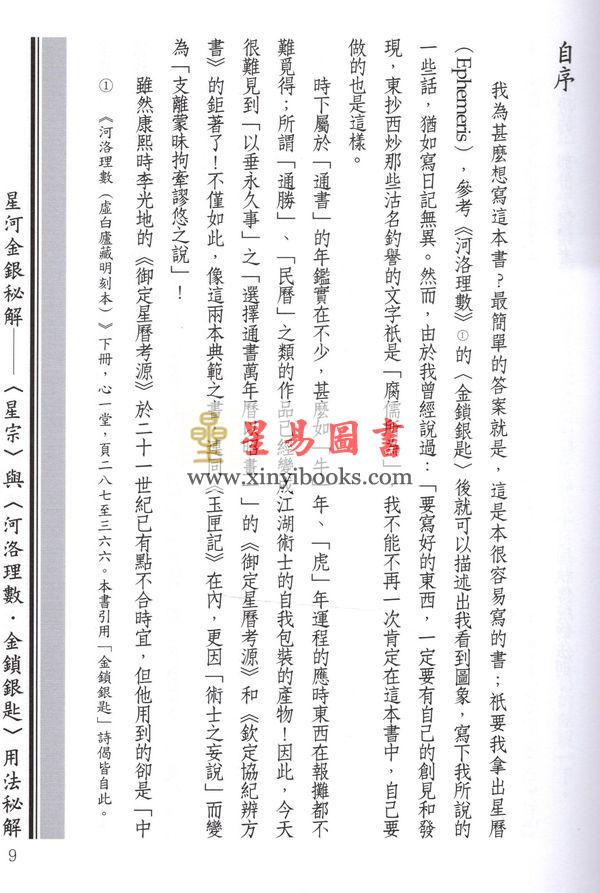 自序
我為甚麼想寫這本書？最簡單的答案就是，這是本很容易寫的書；祇要我拿出星曆
（Ephemeris），參考《河洛理數》①的〈金鎖銀匙〉後就可以描述出我看到圖象，寫下我所說的
一些話，猶如寫日記無異。然而，由於我曾經說過：「要寫好的東西，一定要有自己的創見和發
現，東抄西炒那些沽名釣譽的文字祇是「腐儒 我不能不再一次肯定在這本書中，自己要
做的也是這樣。
時下屬於「通書」的年鑑實在不少，甚麼如「牛 年、「虎」年運程的應時東西在報攤都不
難覓得；所謂「通勝」、「民曆」之類的作品已經變成江湖術士的自我包裝的產物！因此，今天
很難見到「以垂永久事」之「選擇通書萬年曆 的《御定星曆考源》和《欽定協紀辨方
書》的鉅著了！不僅如此，像這兩本典範之書 連同《玉匣記》在內，更因「術士之妄說」而變
為「支離蒙昧拘牽謬悠之說」！
雖然康熙時李光地的《御定星曆考源》於二十一世紀已有點不合時宜，但他用到的卻是「中
① 《河洛理數（虛白廬藏明刻本）》下冊，心一堂，頁二八七至三六六。本書引用「金鎖銀匙」詩偈皆自此。
星河金銀秘解——〈星宗〉與〈河洛理數・金鎖銀匙〉用法秘解
9
星易圖書
www.xinyibooks.com